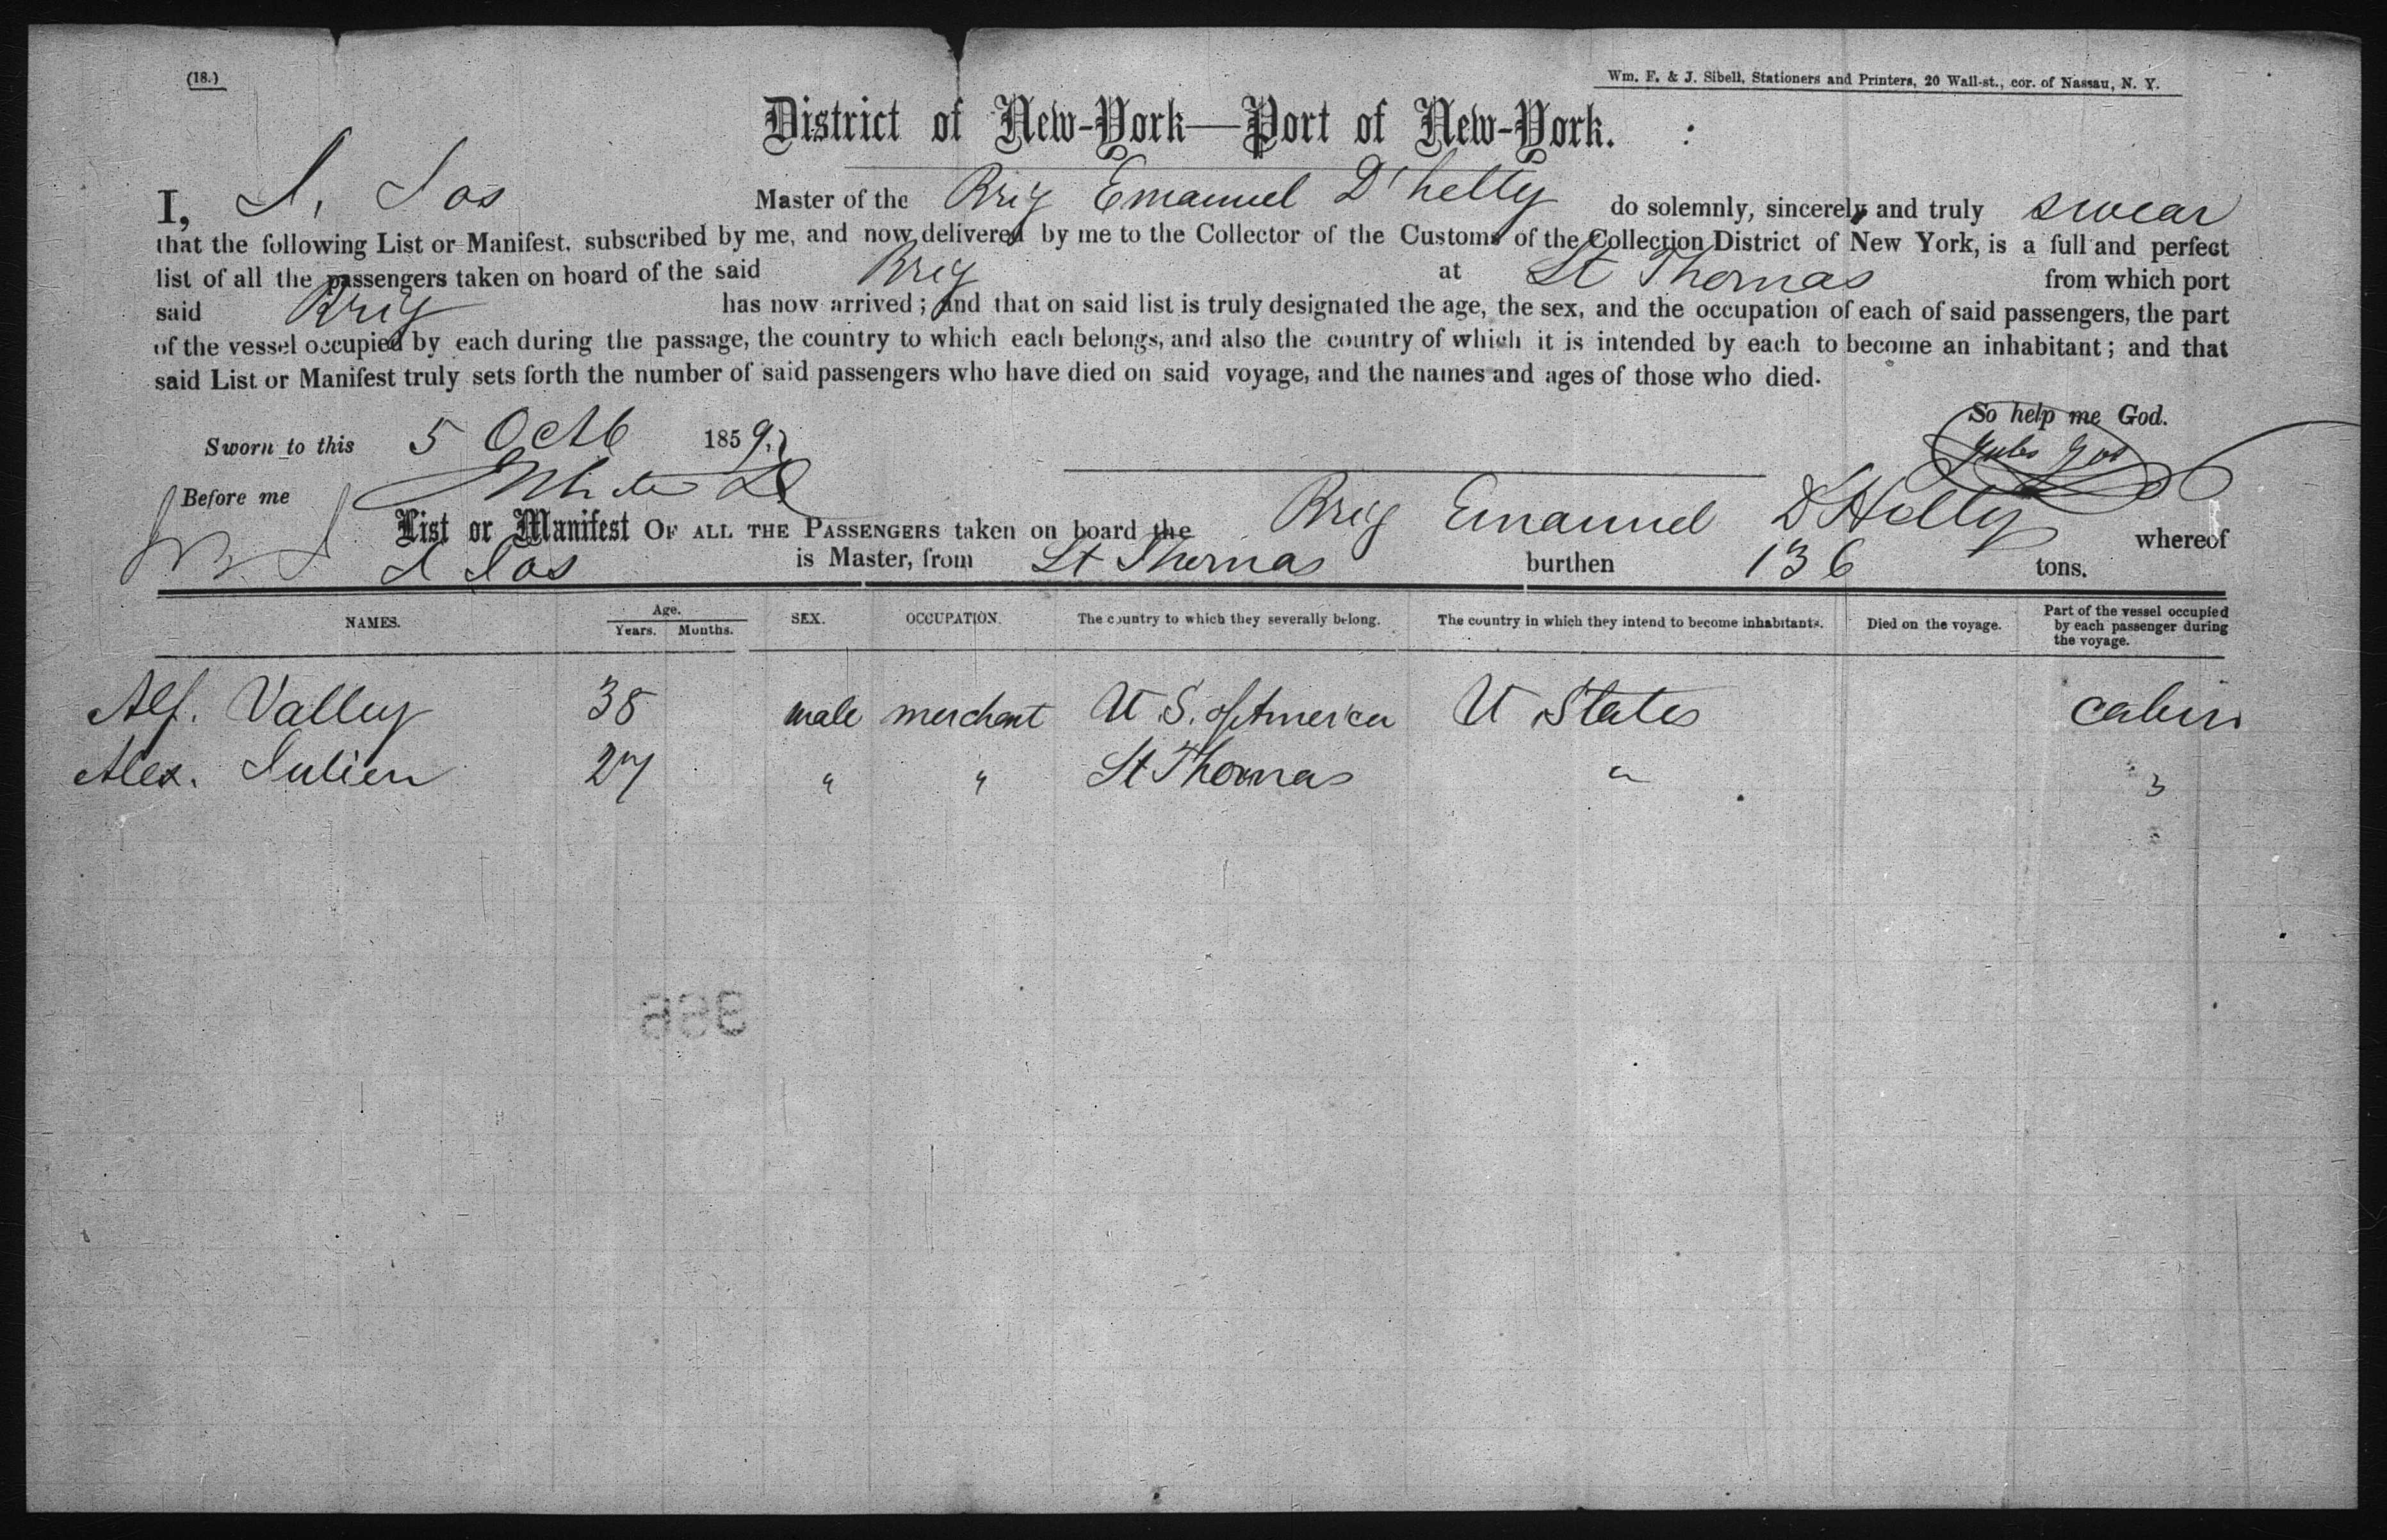 (18.)
Wm. F. & J. Sibell, Stationers and Printers, 20 Wall-st., cor. of Nassau, N. Y.
District of New-York—Port of New-York.
I, J. Jos Master of the Brig Emanuel D'helly do solemnly, sincerely and truly swear
that the following List or Manifest, subscribed by me, and now delivered by me to the Collector of the Customs of the Collection District of New York, is a full and perfect
list of all the passengers taken on board of the said Brig at St Thomas from which port
said Brig has now arrived; and that on said list is truly designated the age, the sex, and the occupation of each of said passengers, the part
of the vessel occupied by each during the passage, the country to which each belongs, and also the country of which it is intended by each to become an inhabitant; and that
said List or Manifest truly sets forth the number of said passengers who have died on said voyage, and the names and ages of those who died.
So help me God.
Sworn to this 5 Octb 1859.
Jules Jos
Before me
List or Manifest OF ALL THE PASSENGERS taken on board the Brig Emanuel D'Helly whereof
J Jos is Master, from St Thomas burthen 136 tons.
NAMES. Age. Years. Months. SEX. OCCUPATION. The country to which they severally belong. The country in which they intend to become inhabitants. Died on the voyage. Part of the vessel occupied by each passenger during the voyage.
Alf. Valley 38 male merchant U.S. of America U States cabin
Alex. Julien 27 " " St Thomas " "